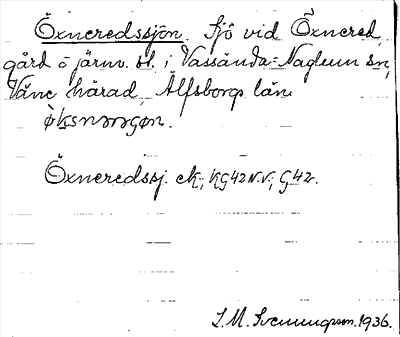 Öxneredssjön. Sjö vid Öxnered,
gård o järnv. st. i Vassända-Naglum sn,
Väne härad, Älfsborgs län.
Öxneredssj. ek; KG42N.V.; G42v.
S.M. Svenungsson. 1936.